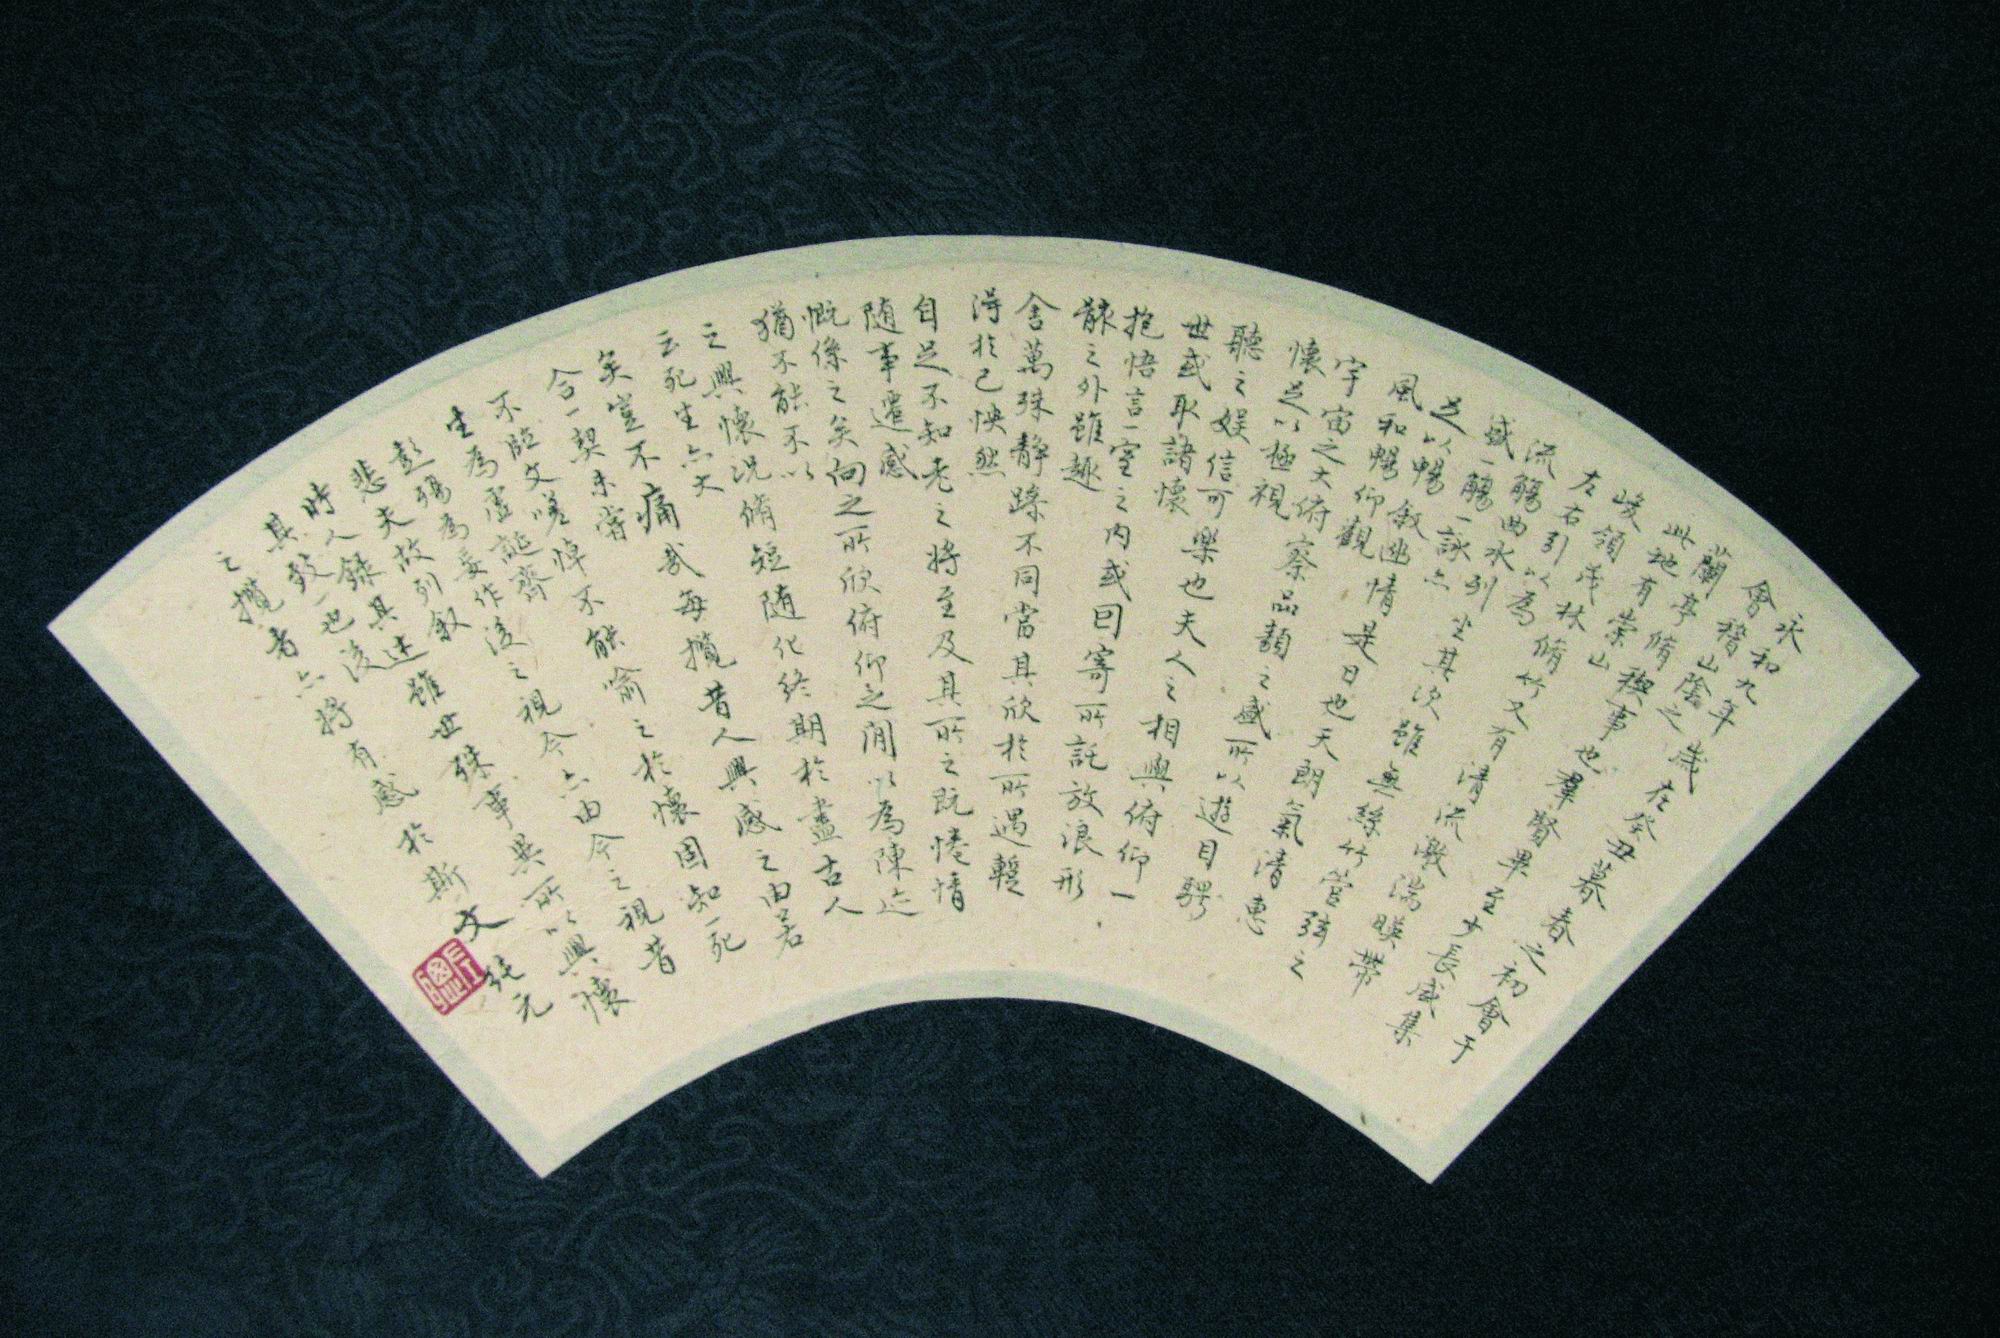 永和九年歲在癸丑暮春之初會于
會稽山陰之
蘭亭脩禊事也羣賢畢至少長咸集
此地有崇山
峻領茂林脩竹又有清流激湍暎帶
左右引以為
流觴曲水列坐其次雖無絲竹管弦之
盛一觴一詠亦
足以暢敘幽情是日也天朗氣清惠
風和暢仰觀
宇宙之大俯察品類之盛所以遊目騁
懷足以極視
聽之娛信可樂也夫人之相與俯仰一
世或取諸懷
抱悟言一室之內或因寄所託放浪形
骸之外雖趣
舍萬殊靜躁不同當其欣於所遇蹔
得於己怏然
自足不知老之將至及其所之既惓情
随事遷感
慨係之矣向之所欣俯仰之閒以為陳迹
猶不能不以
之興懷況脩短随化終期於盡古人
云死生亦大
矣豈不痛哉每攬昔人興感之由若
合一契未嘗
不臨文嗟悼不能喻之於懷固知一死
生為虛誕齊
彭殤為妄作後之視今亦由今之視昔
悲夫故列叙
時人錄其述雖世殊事異所以興懷
其致一也後
之攬者亦將有感於斯文
純元